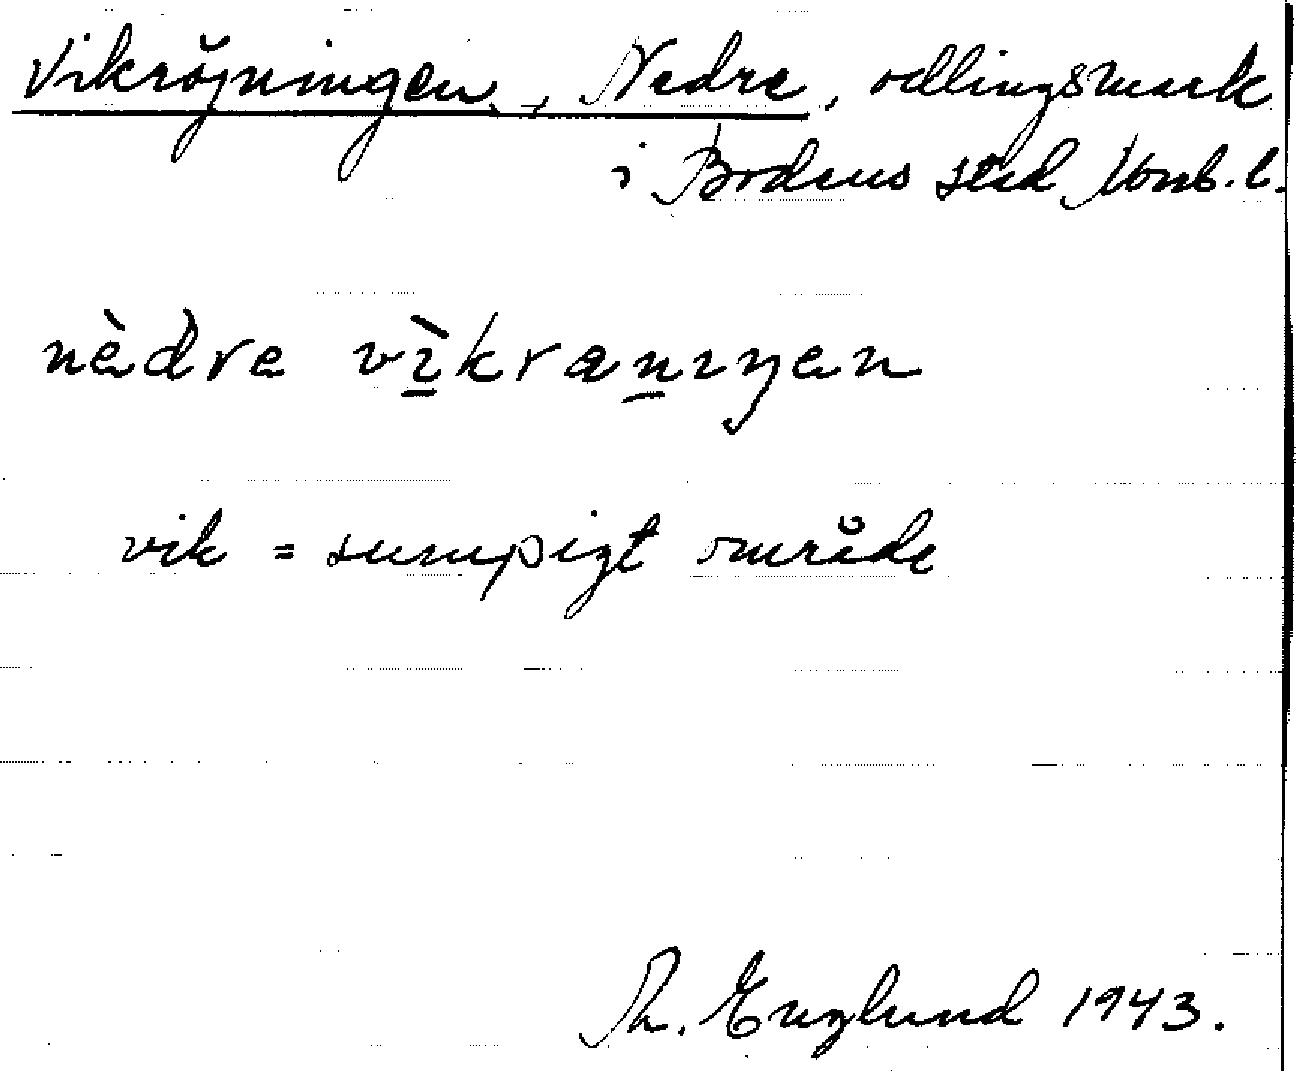 Vikröjningen, Nedre, odlingsmark
i Bodens stad, Nrb. l.
nèdre vìkranıŋen
vik = sumpigt område
Th. Englund 1943.